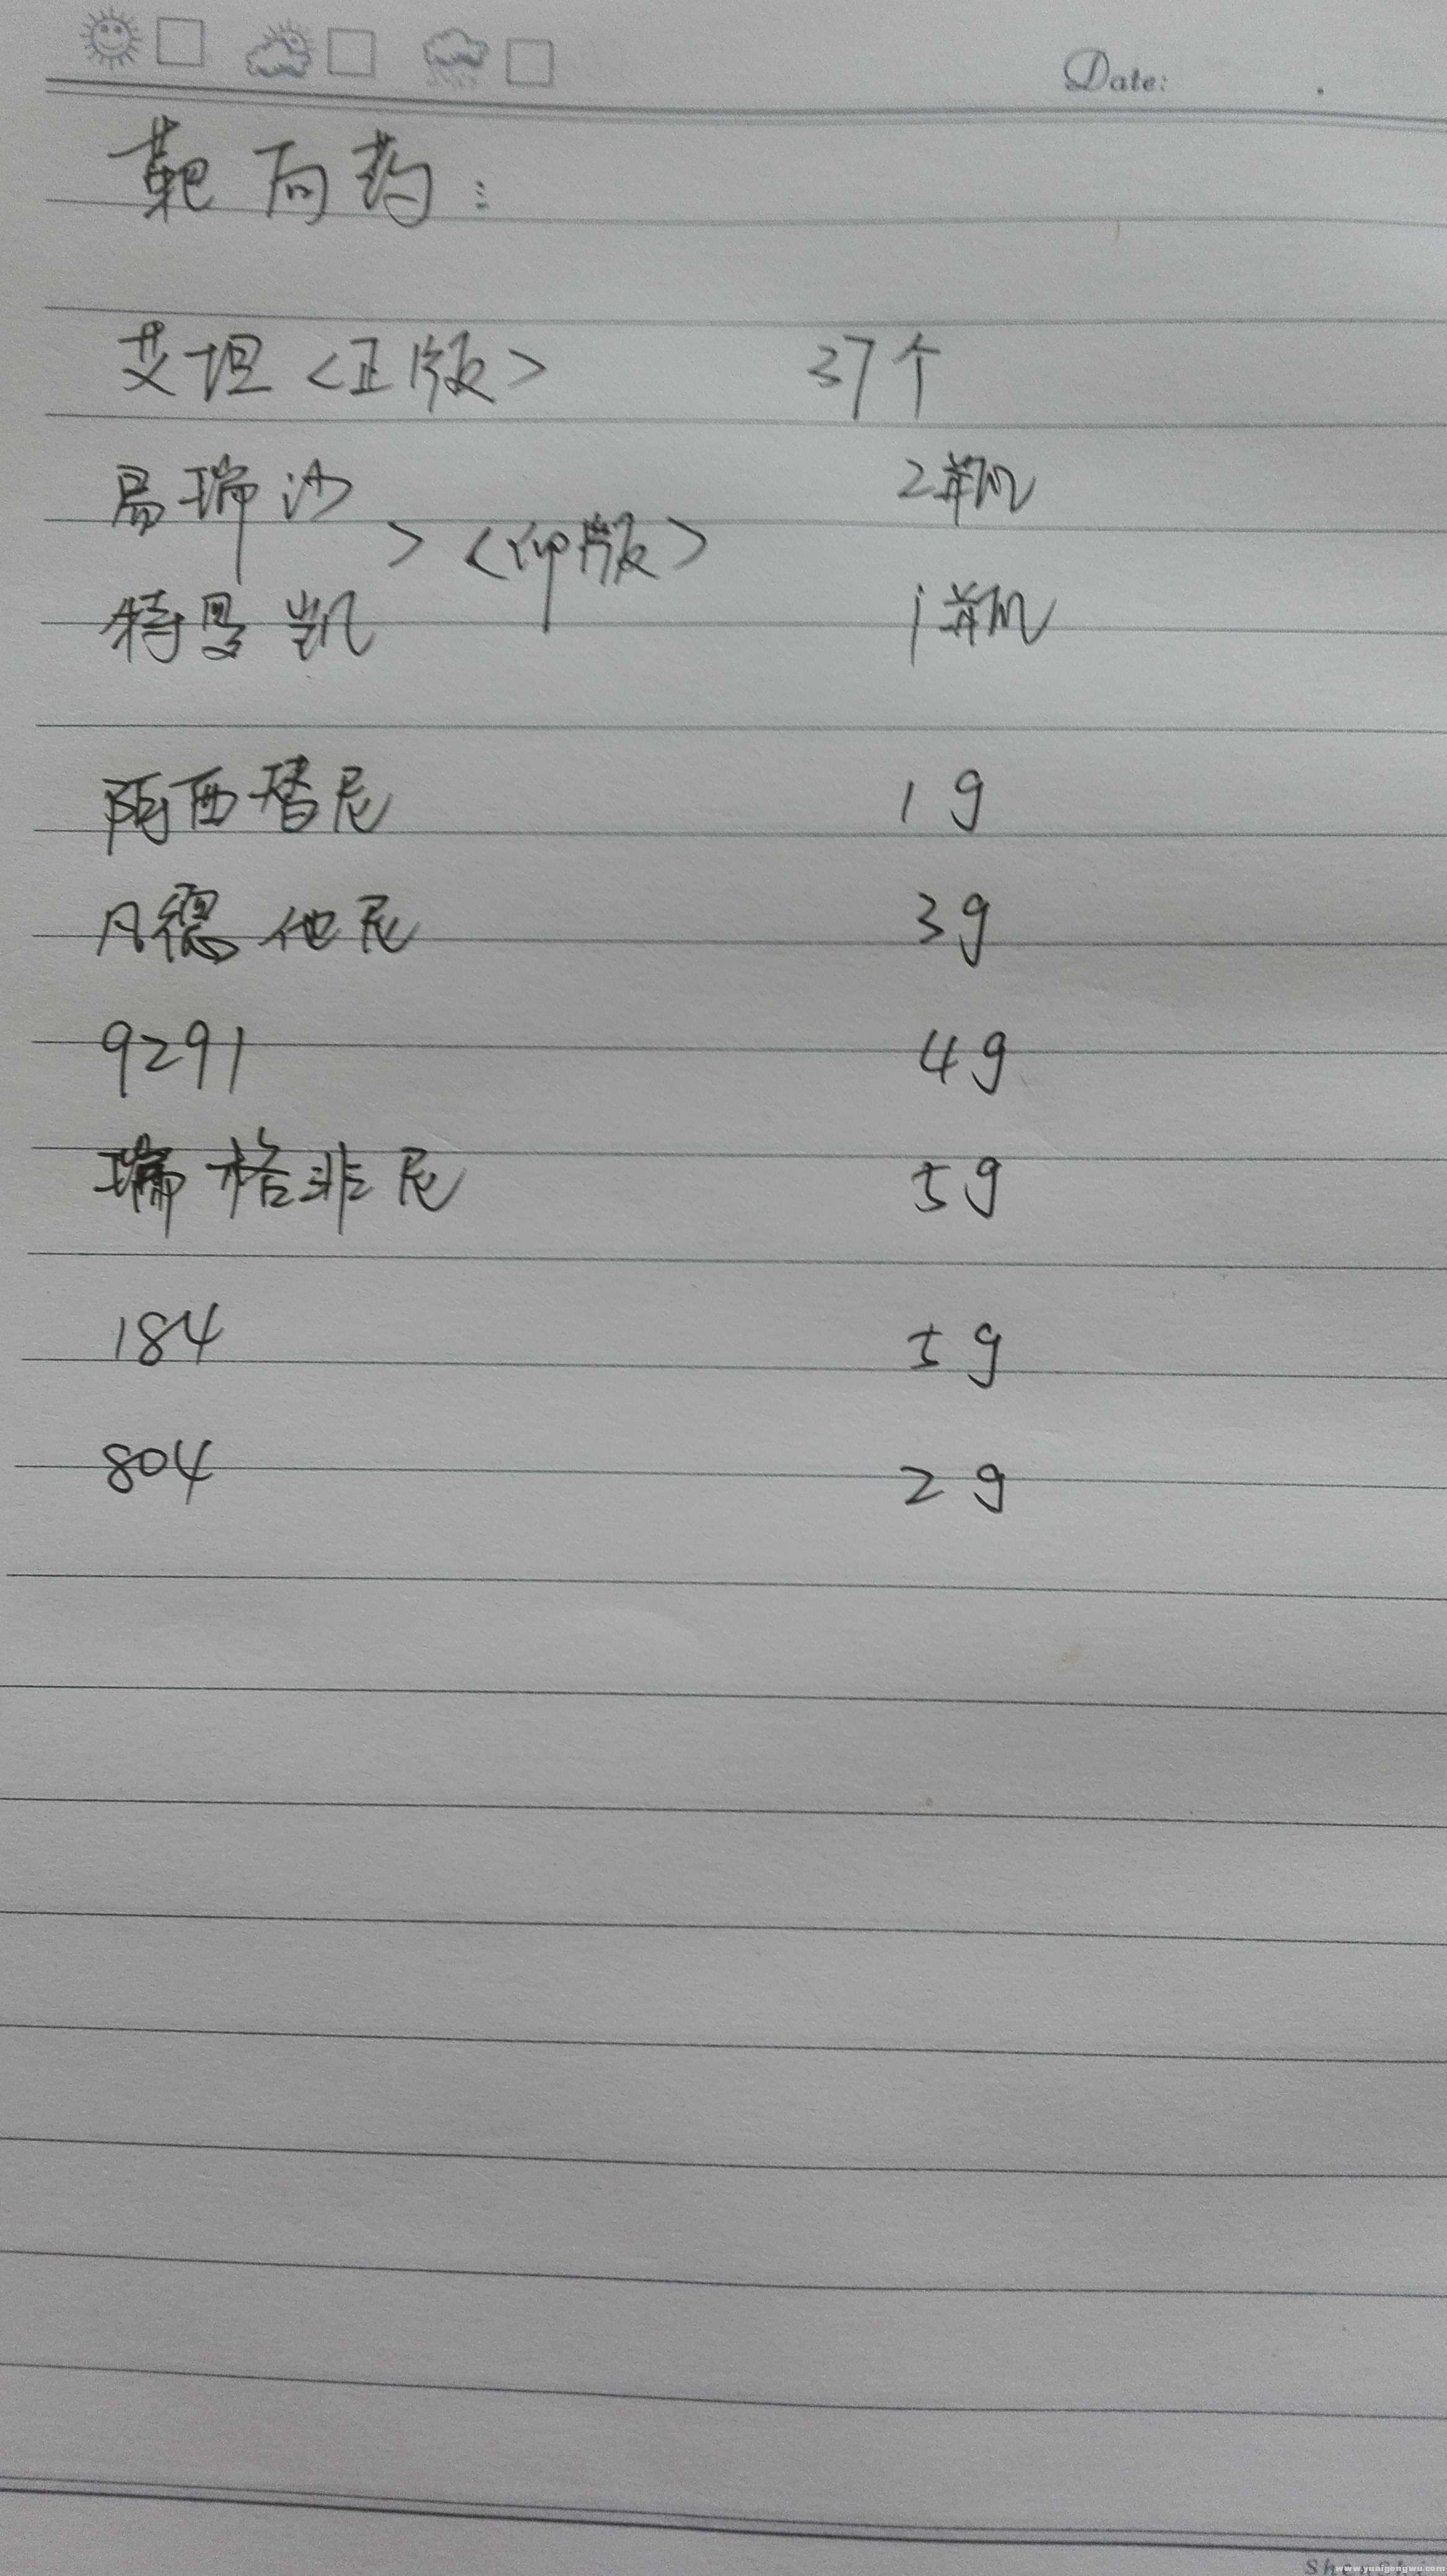 Date:
靶向药:
艾坦<正版> 37个
易瑞沙 2瓶
> <印版>
特罗凯 1瓶
陌西替尼 1g
凡德他尼 3g
9291 4g
瑞格非尼 5g
184 5g
804 2g
www.yuaigongwu.com